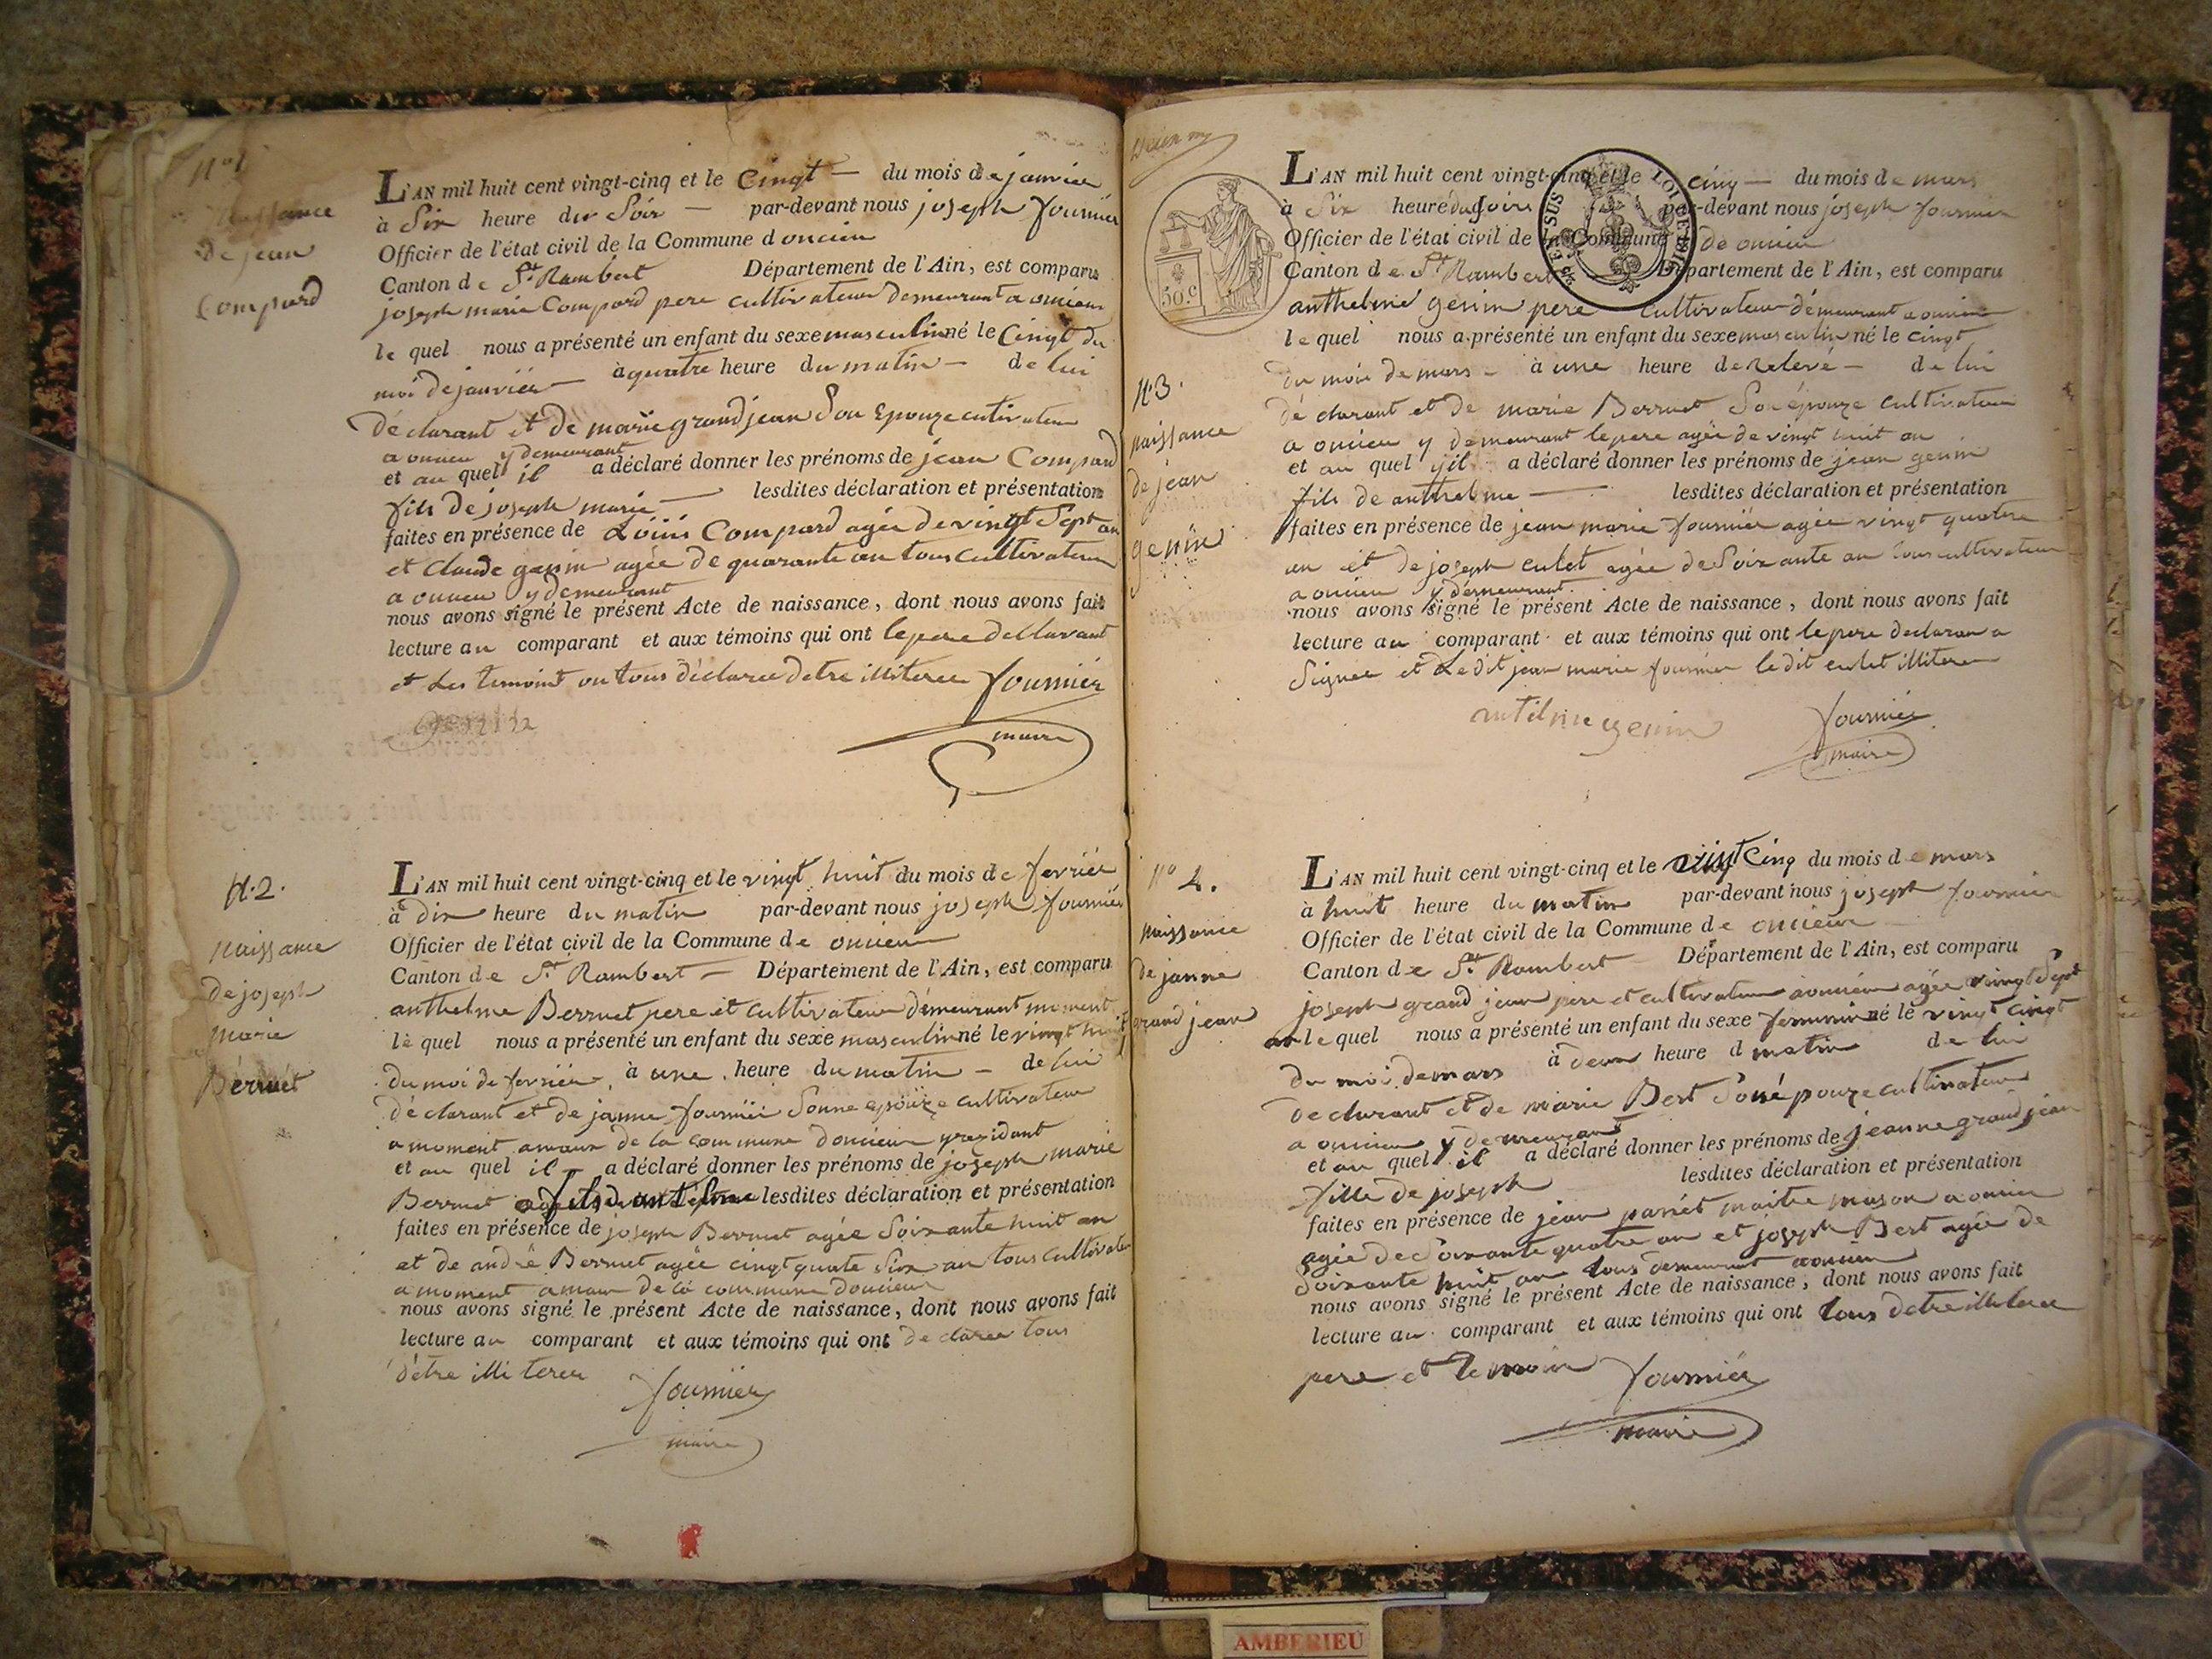 N° 1
Naissance
De jean
Compard
L'AN mil huit cent vingt-cinq et le Cinqt — du mois de janvier
à Six heure du Soir — par-devant nous joseph fournier
Officier de l'état civil de la Commune d oncieu
Canton de St Rambert Département de l'Ain, est comparu
joseph marie Compard pere cultivateur demeurant a oncieu
le quel nous a présenté un enfant du sexe masculin né le Cinqt du
moi de janvier — à quatre heure du matin — de lui
déclarant et de marie grandjean Son Epouze cutivateur
a oncieu y demeurant
et au quel il a déclaré donner les prénoms de jean Compard
fils de joseph marie — lesdites déclaration et présentation
faites en présence de Louis Compard agée de vingt Sept an
et Claude genin agée de quarante an tous cultivateur
a oncieu y demeurant
nous avons signé le présent Acte de naissance, dont nous avons fait
lecture au comparant et aux témoins qui ont le pere decllarant
et Les temoint on tous déclaree detre illiteree fournier
genin
maire
N. 2.
naissance
de joseph
marie
Berruet
L'AN mil huit cent vingt-cinq et le vingt huit du mois de fevriér
à dix heure du matin par-devant nous joseph fournier
Officier de l'état civil de la Commune de oncieu
Canton de St Rambert — Département de l'Ain, est comparu
anthelme Berruet pere et cultivateur démeurant moment
le quel nous a présenté un enfant du sexe masculin né le vingt huit
du moi de fevriér à une heure du matin — de lui
déclarant et de janne fournier Sonne epouze cultivateur
a moment amaux de la commune doncieu y rezidant
et au quel il a déclaré donner les prénoms de joseph marie
Berruet fils d antelme lesdites déclaration et présentation
faites en présence de joseph Berruet agée Soixante huit an
et de andré Berruet agée cinqt quate Six an tous cultivateur
a moment amaux de la commune doncieu
nous avons signé le présent Acte de naissance, dont nous avons fait
lecture au comparant et aux témoins qui ont declaree tous
d'etre illi teree fournier
maire
50.C
LOI DE
EN SUS
N. 3.
naissance
de jean
genin
L'AN mil huit cent vingt-cinq et le cinq — du mois de mars
à Six heure du Soire par-devant nous joseph fournier
Officier de l'état civil de la Commune de oncieu
Canton de St Rambert Département de l'Ain, est comparu
anthelme genin pere cultivateur démeurant a oncieu
le quel nous a présenté un enfant du sexe masculin né le cinqt
du moi de mars — à une heure de relevé — de lui
déclarant et de marie Berruet Son épouze cultivateur
a oncieu y demeurant le pere agée de vingt huit an
et au quel y il a déclaré donner les prénoms de jean genin
fils de anthelme — lesdites déclaration et présentation
faites en présence de jean marie fournier agée vingt quatre
an et de joseph culet agée de Soixante an tous cultivateur
a oncieu y démeurant
nous avons signé le présent Acte de naissance, dont nous avons fait
lecture au comparant et aux témoins qui ont le pere declaran a
Signee et Ledit jean marie fournier ledit culet illiteree
antelme genin fournier
maire
N° 4.
naissance
de janne
grand jean
L'AN mil huit cent vingt-cinq et le vingt Cinq du mois de mars
à huit heure du matin par-devant nous joseph fournier
Officier de l'état civil de la Commune de oncieu
Canton de St Rambert Département de l'Ain, est comparu
joseph grand jean pere et cultivateur a oncieu agée vingt Sept
an le quel nous a présenté un enfant du sexe feminin né le vingt cinqt
du moi de mars à deux heure d matin de lui
declarant et de marie Bert Soné pouze cultivateur
a oncieu y demeurant
et au quel il a déclaré donner les prénoms de jeanne grand jean
fille de joseph lesdites déclaration et présentation
faites en présence de jean parrét maitre mason a oncieu
agée de Soixante quatre an et joseph Bert agée de
Soixante huit an tous demeurant a oncieu
nous avons signé le présent Acte de naissance, dont nous avons fait
lecture au comparant et aux témoins qui ont tous detre illiteree
pere et temoin fournier
maire
AMBERIEU